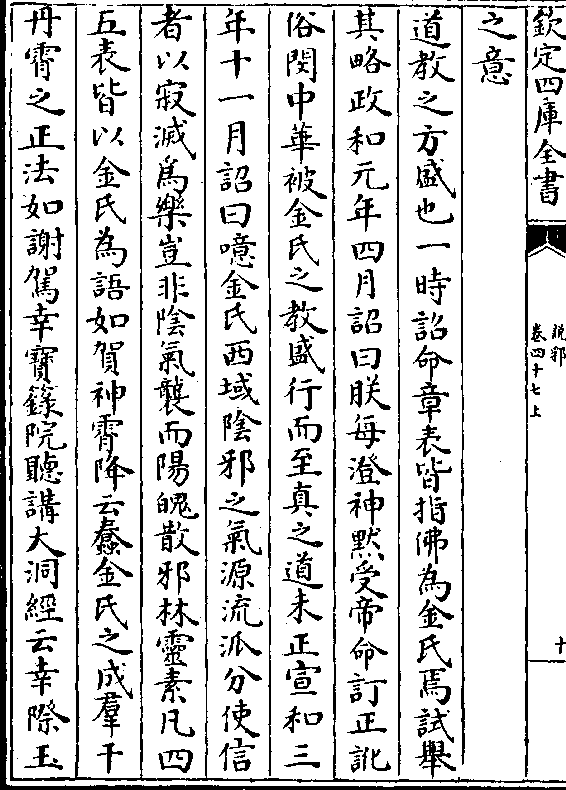 欽定四庫全書
說郛
卷四十七上
十
之意
道教之方盛也一時詔命章表皆指佛為金氏焉試舉
其略政和元年四月詔曰朕每澄神默受帝命訂正訛
俗閔中華被金氏之教盛行而至真之道未正宣和三
年十一月詔曰噫金氏西域陰邪之氣源流派分使信
者以寂滅為樂豈非陰氣襲而陽魄散邪林靈素凡四
五表皆以金氏為語如賀神霄降云蠢金氏之成羣干
丹霄之正法如謝駕幸寶籙院聽講大洞經云幸際玉